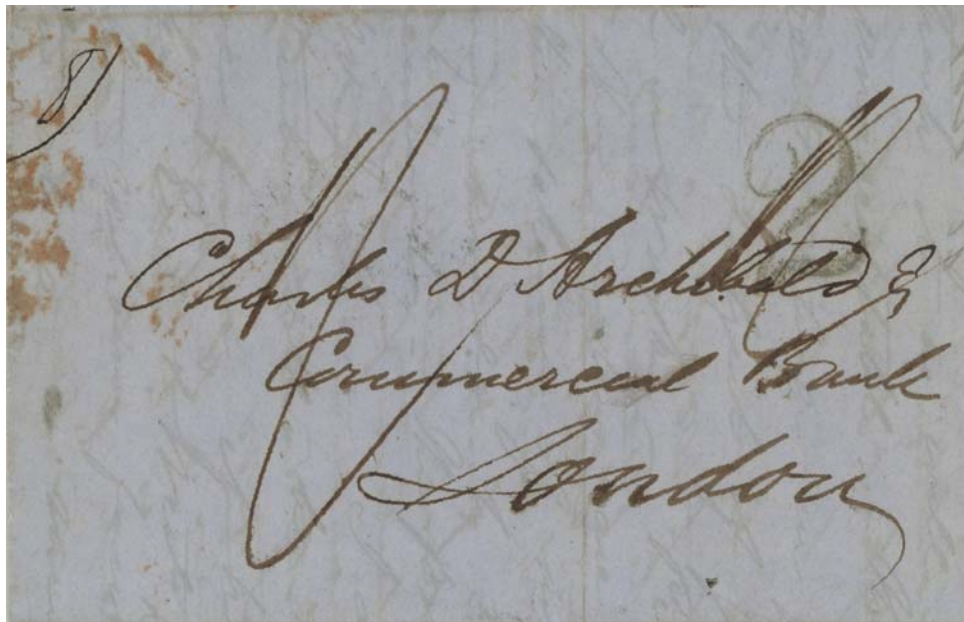 8)
2
Charles D Archibald
Commercial Bank
London